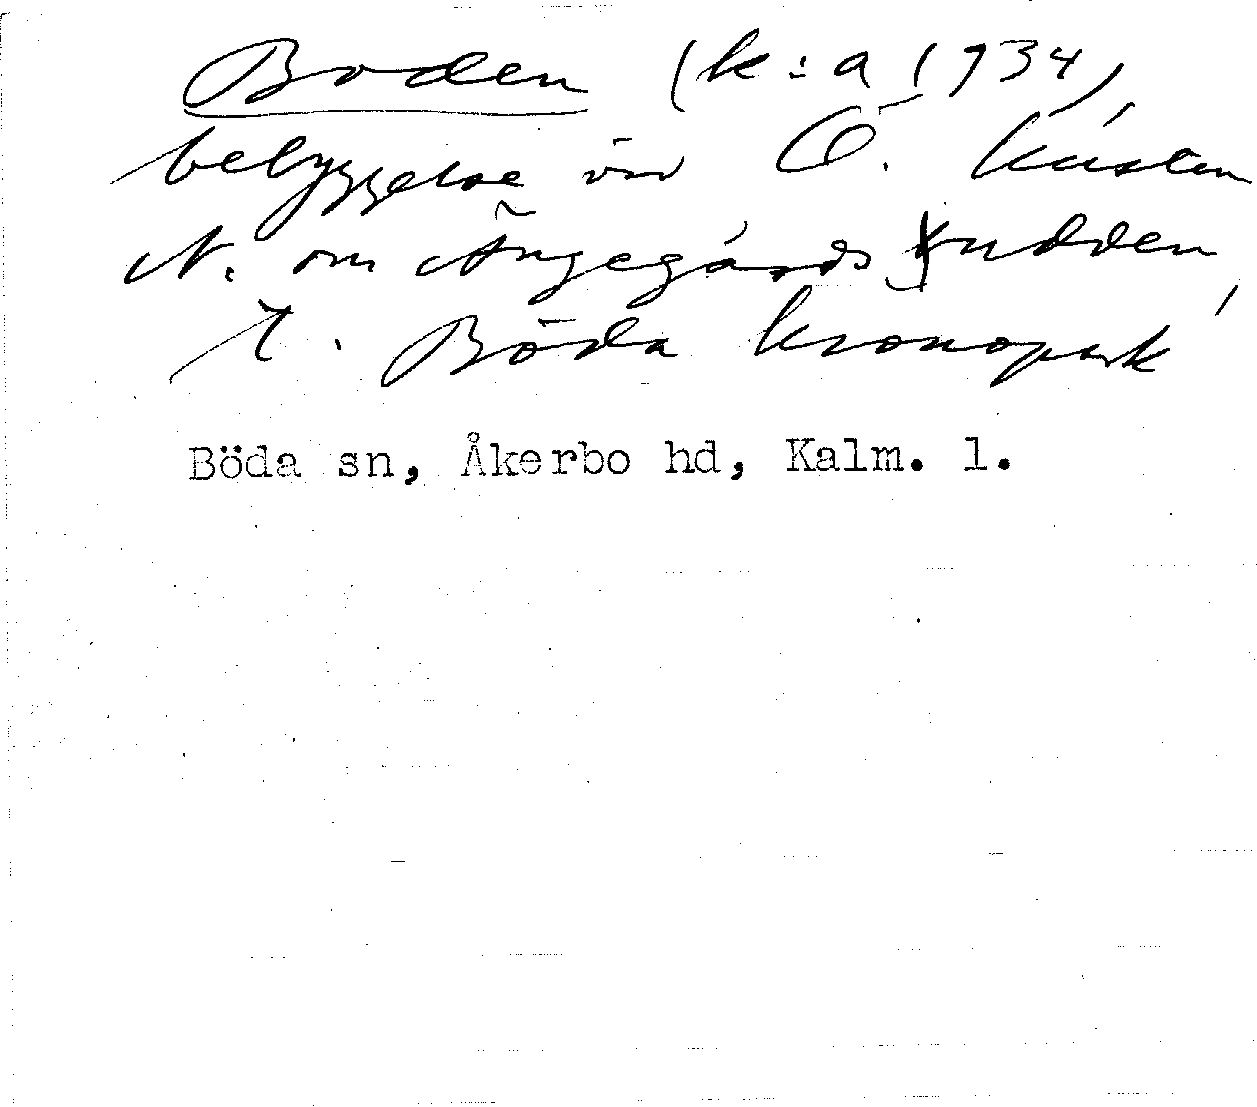 Boden (k:a 1934)
bebyggelse vid Ö. kusten
N. om Ängegårdsudden,
i Böda kronopark
Böda sn, Åkerbo hd, Kalm. l.